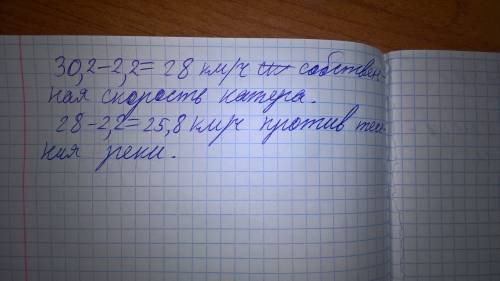 30,2-2,2= 28 км/ч собствен-
ная скорость катера.
28-2,2=25,8 км/ч против тече-
ния реки.